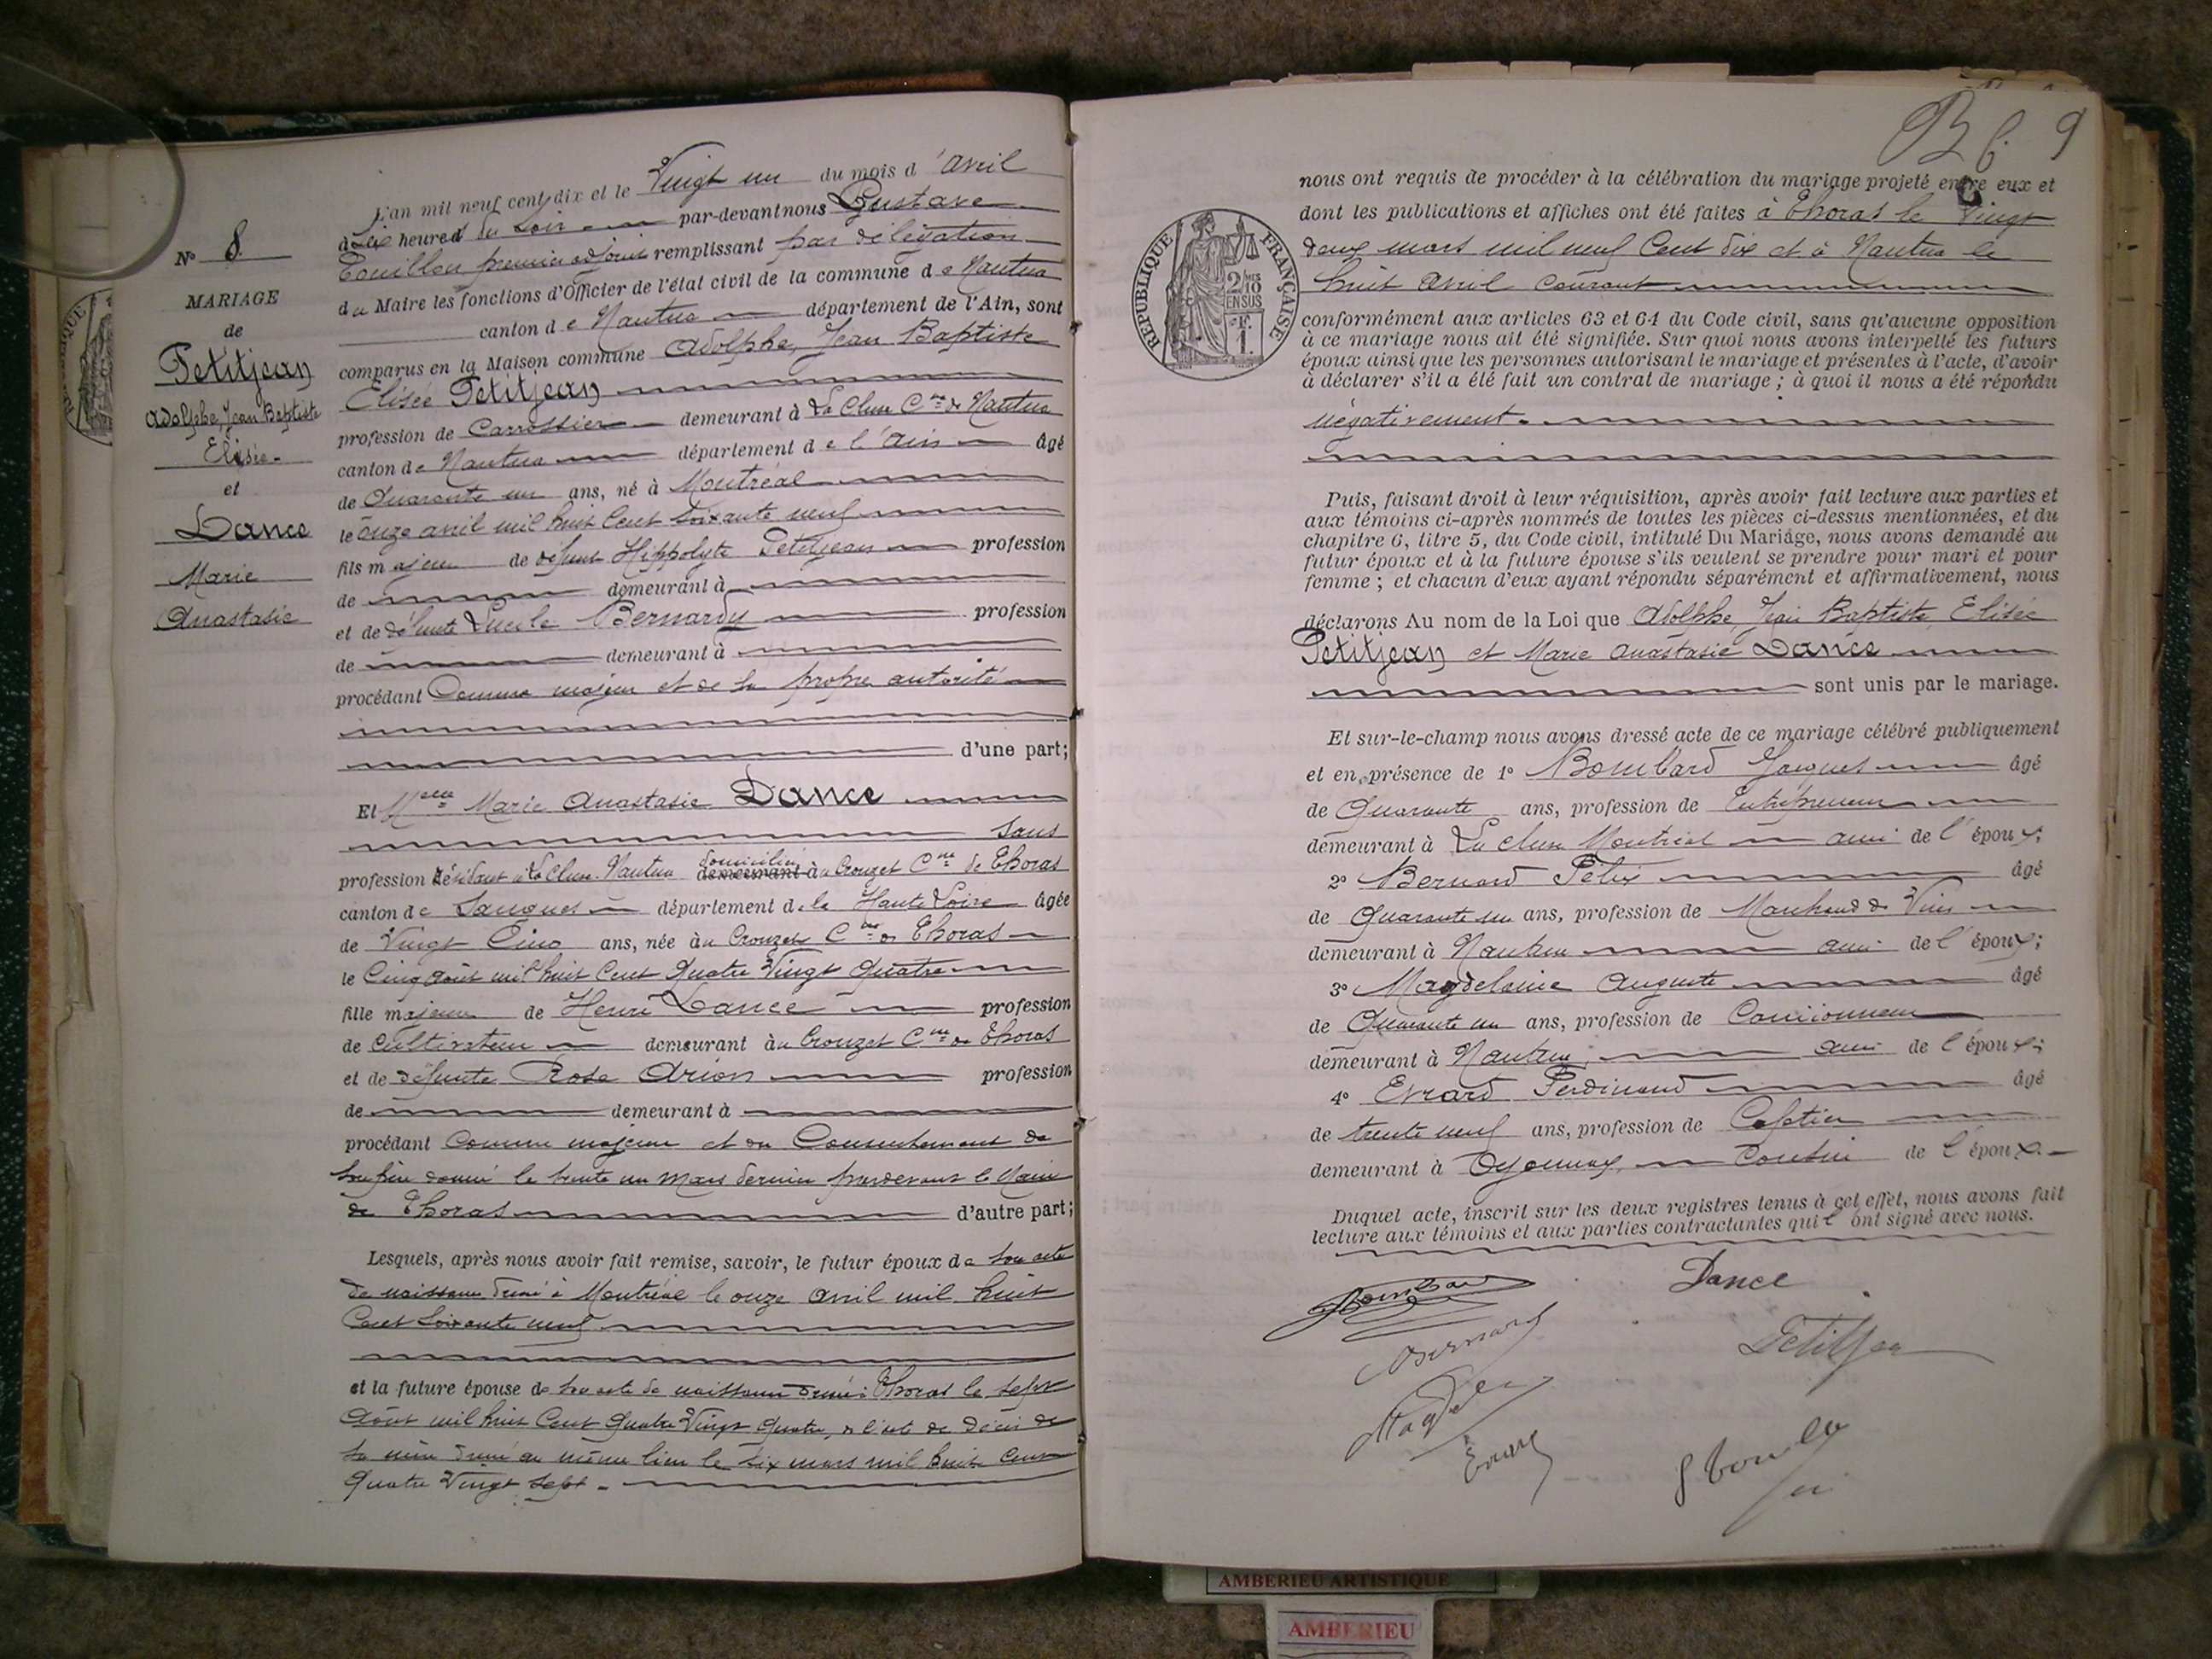 N° 8.
MARIAGE
de
Petitjean
Adolphe, Jean Baptiste
Elisée
et
Dance
Marie
Anastasie
L'an mil neuf cent dix et le Vingt un du mois d'avril
à Six heures du soir par-devant nous Gustave
Touillon premier adjoint remplissant par délégation
du Maire les fonctions d'Officier de l'état civil de la commune de Nantua
canton de Nantua département de l'Ain, sont
comparus en la Maison commune Adolphe, Jean Baptiste
Elisée Petitjean
profession de Carrossier demeurant à La Cluse Cne de Nantua
canton de Nantua département de l'Ain âgé
de Quarante un ans, né à Montréal
le onze avril mil huit Cent soixante neuf
fils majeur de défunt Hippolyte Petitjean profession
de demeurant à
et de défunte Lucile Bernardy profession
de demeurant à
procédant Comme majeur et de sa propre autorité
d'une part;
Et Melle Marie Anastasie Dance
Sans
profession Résidant à La Cluse Nantua domiciliée demeurant au Crouzet Cne de Thoras
canton de Saugues département de la Haute Loire âgée
de Vingt Cinq ans, née au Crouzet Cne de Thoras
le Cinq août mil huit Cent Quatre Vingt Quatre
fille majeure de Henri Dance profession
de Cultivateur demeurant au Crouzet Cne de Thoras
et de défunte Rose Arion profession
de demeurant à
procédant Comme majeure et du Consentement de
son père donné le trente un mars dernier pardevant le Maire
de Thoras d'autre part;
Lesquels, après nous avoir fait remise, savoir, le futur époux de son acte
de naissance dressé à Montréal le onze avril mil huit
Cent Soixante neuf
et la future épouse de son acte de naissance dressé à Thoras le sept
Août mil huit Cent Quatre Vingt Quatre, & l'acte de décès de
sa mère dressé au même lieu le six mars mil huit cent
Quatre Vingt sept.
B C. 9
RÉPUBLIQUE FRANÇAISE
2/10 MES
EN SUS
1 F.
nous ont requis de procéder à la célébration du mariage projeté entre eux et
dont les publications et affiches ont été faites à Thoras le Vingt
deux mars mil neuf Cent dix et à Nantua le
huit avril courant
conformément aux articles 63 et 64 du Code civil, sans qu'aucune opposition
à ce mariage nous ait été signifiée. Sur quoi nous avons interpellé les futurs
époux ainsi que les personnes autorisant le mariage et présentes à l'acte, d'avoir
à déclarer s'il a été fait un contrat de mariage ; à quoi il nous a été répondu
négativement.
Puis, faisant droit à leur réquisition, après avoir fait lecture aux parties et
aux témoins ci-après nommés de toutes les pièces ci-dessus mentionnées, et du
chapitre 6, titre 5, du Code civil, intitulé Du Mariage, nous avons demandé au
futur époux et à la future épouse s'ils veulent se prendre pour mari et pour
femme ; et chacun d'eux ayant répondu séparément et affirmativement, nous
déclarons Au nom de la Loi que Adolphe, Jean Baptiste, Elisée
Petitjean et Marie Anastasie Dance
sont unis par le mariage.
Et sur-le-champ nous avons dressé acte de ce mariage célébré publiquement
et en présence de 1° Bombard Jacques âgé
de Quarante ans, profession de Entrepreneur
demeurant à La Cluse Montréal ami de l'époux;
2° Bernard Félix âgé
de Quarante un ans, profession de Marchand de Vins
demeurant à Nantua ami de l'époux;
3° Magdelaine Auguste âgé
de Quarante un ans, profession de Camionneur
demeurant à Nantua ami de l'époux;
4° Evrard Ferdinand âgé
de trente neuf ans, profession de Cafetier
demeurant à Oyonnax Cousin de l'époux.
Duquel acte, inscrit sur les deux registres tenus à cet effet, nous avons fait
lecture aux témoins et aux parties contractantes qui l'ont signé avec nous.
Bombard
Dance
Bernard
Petitjean
Magdel
Evrard
G Touillon
AMBERIEU ARTISTIQUE
AMBERIEU